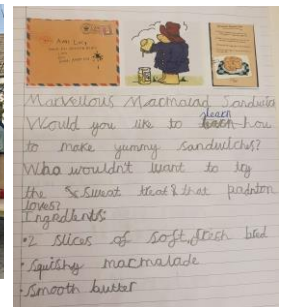 Marvellous Marmalad Sandwich
Would you like to learn how
to make yummy sandwiches?
Who wouldn't want to try
the sweat treat that padnton
loves?
Ingredients:
•2 slices of soft, fresh bred
•Squishy marmalade
•Smooth butter